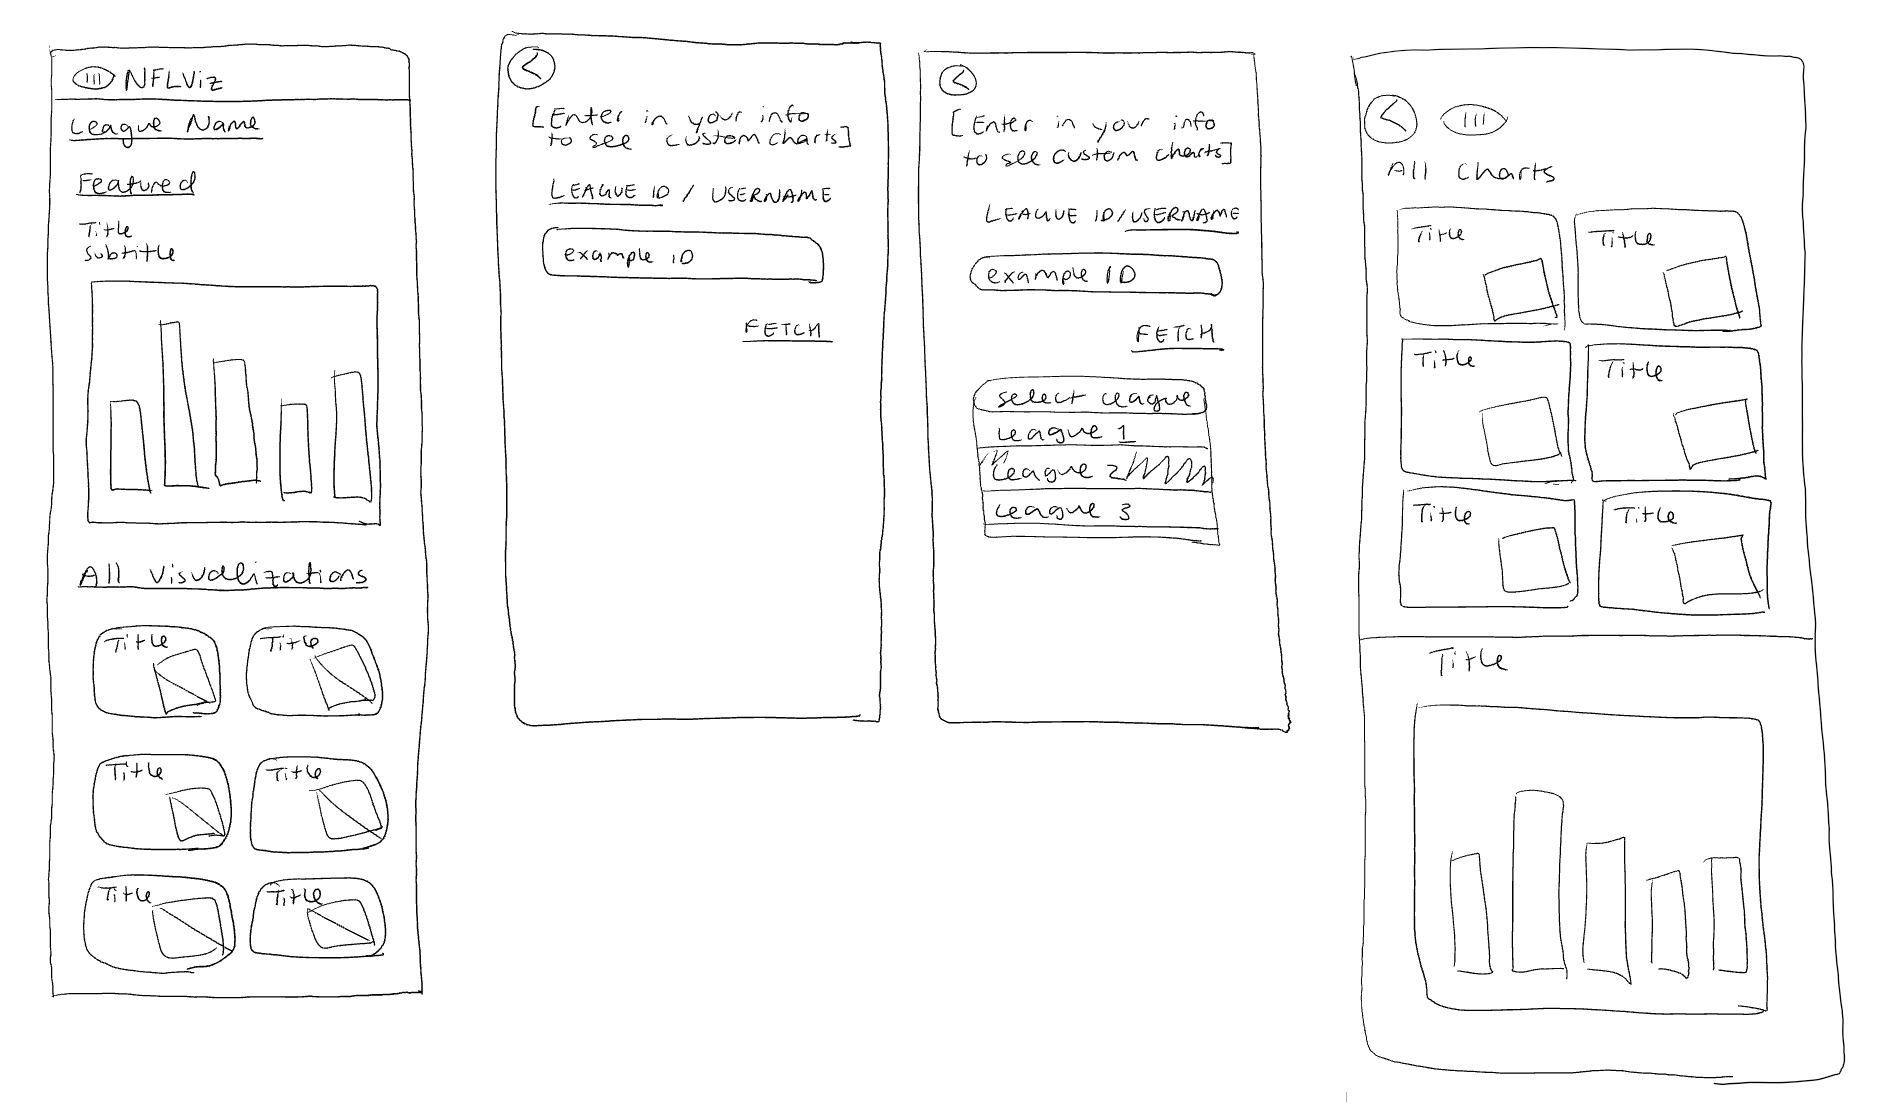 NFLViz
League Name
Featured
Title
Subtitle
All Visualizations
Title
Title
Title
Title
Title
Title
[Enter in your info
to see custom charts]
LEAGUE ID / USERNAME
example ID
FETCH
[Enter in your info
to see custom charts]
LEAGUE ID/USERNAME
example ID
FETCH
select league
league 1
league 2
league 3
All Charts
Title
Title
Title
Title
Title
Title
Title